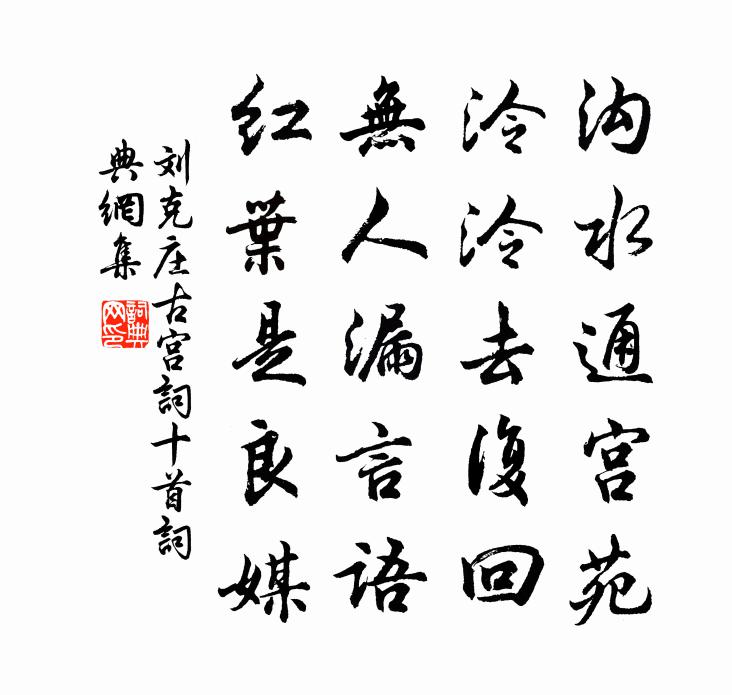 沟水通宫苑
泠泠去復回
無人漏言語
紅葉是良媒
刘克庄古宫詞十首詞
典網集
詞典
网印